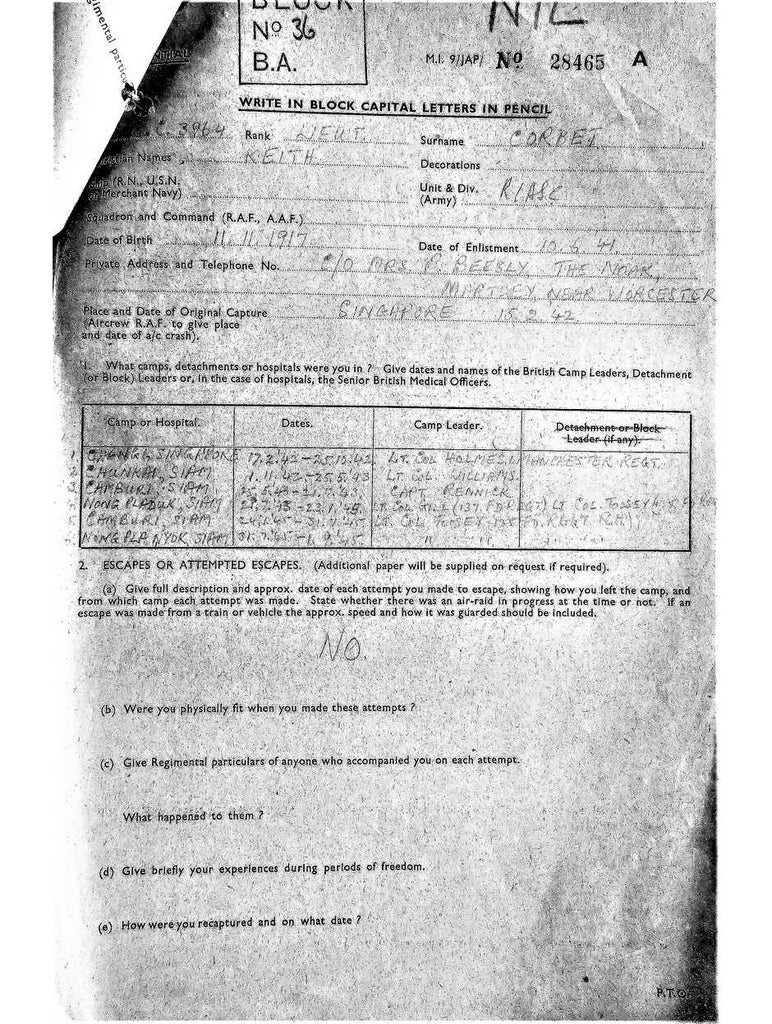 BLOCK
Nº 36
B.A.
NIL
M.I. 9/JAP/ Nº 28465 A
WRITE IN BLOCK CAPITAL LETTERS IN PENCIL
C. 3964 Rank LIEUT. Surname CORBET
Names KEITH Decorations
(R.N., U.S.N. Unit & Div. RIASC
Merchant Navy) (Army)
Squadron and Command (R.A.F., A.A.F.)
Date of Birth 11.11.1917 Date of Enlistment 10.6.41
Private Address and Telephone No. C/O MRS. P. BEESLY, THE NOAK,
MARTLEY, NEAR WORCESTER
Place and Date of Original Capture SINGAPORE 15.2.42
(Aircrew R.A.F. to give place
and date of a/c crash).
1. What camps, detachments or hospitals were you in ? Give dates and names of the British Camp Leaders, Detachment
(or Block) Leaders or, in the case of hospitals, the Senior British Medical Officers.
Camp or Hospital. Dates. Camp Leader. Detachment or Block
Leader (if any).
1. CHANGI, SINGAPORE 17.2.42-25.10.42 LT. COL HOLMES, MANCHESTER REGT.
2. CHUNKAI, SIAM 1.11.42-25.5.43 LT. COL. WILLIAMS.
3. CAMBURI, SIAM 5.43-21.7.43. CAPT RENNICK
NONG PLADUK, SIAM -23.1.45. LT. COL GILL (137. FD REGT) LT COL TOOSEY
5. CAMBURI, SIAM 24.1.45- LT. COL TOOSEY 135 FD. REGT R.A.
NONG PLA NYOK, SIAM 31.7.45-1.9.45 " "
2. ESCAPES OR ATTEMPTED ESCAPES. (Additional paper will be supplied on request if required).
(a) Give full description and approx. date of each attempt you made to escape, showing how you left the camp, and
from which camp each attempt was made. State whether there was an air-raid in progress at the time or not. If an
escape was made from a train or vehicle the approx. speed and how it was guarded should be included.
NO.
(b) Were you physically fit when you made these attempts ?
(c) Give Regimental particulars of anyone who accompanied you on each attempt.
What happened to them ?
(d) Give briefly your experiences during periods of freedom.
(e) How were you recaptured and on what date ?
P.T.O.